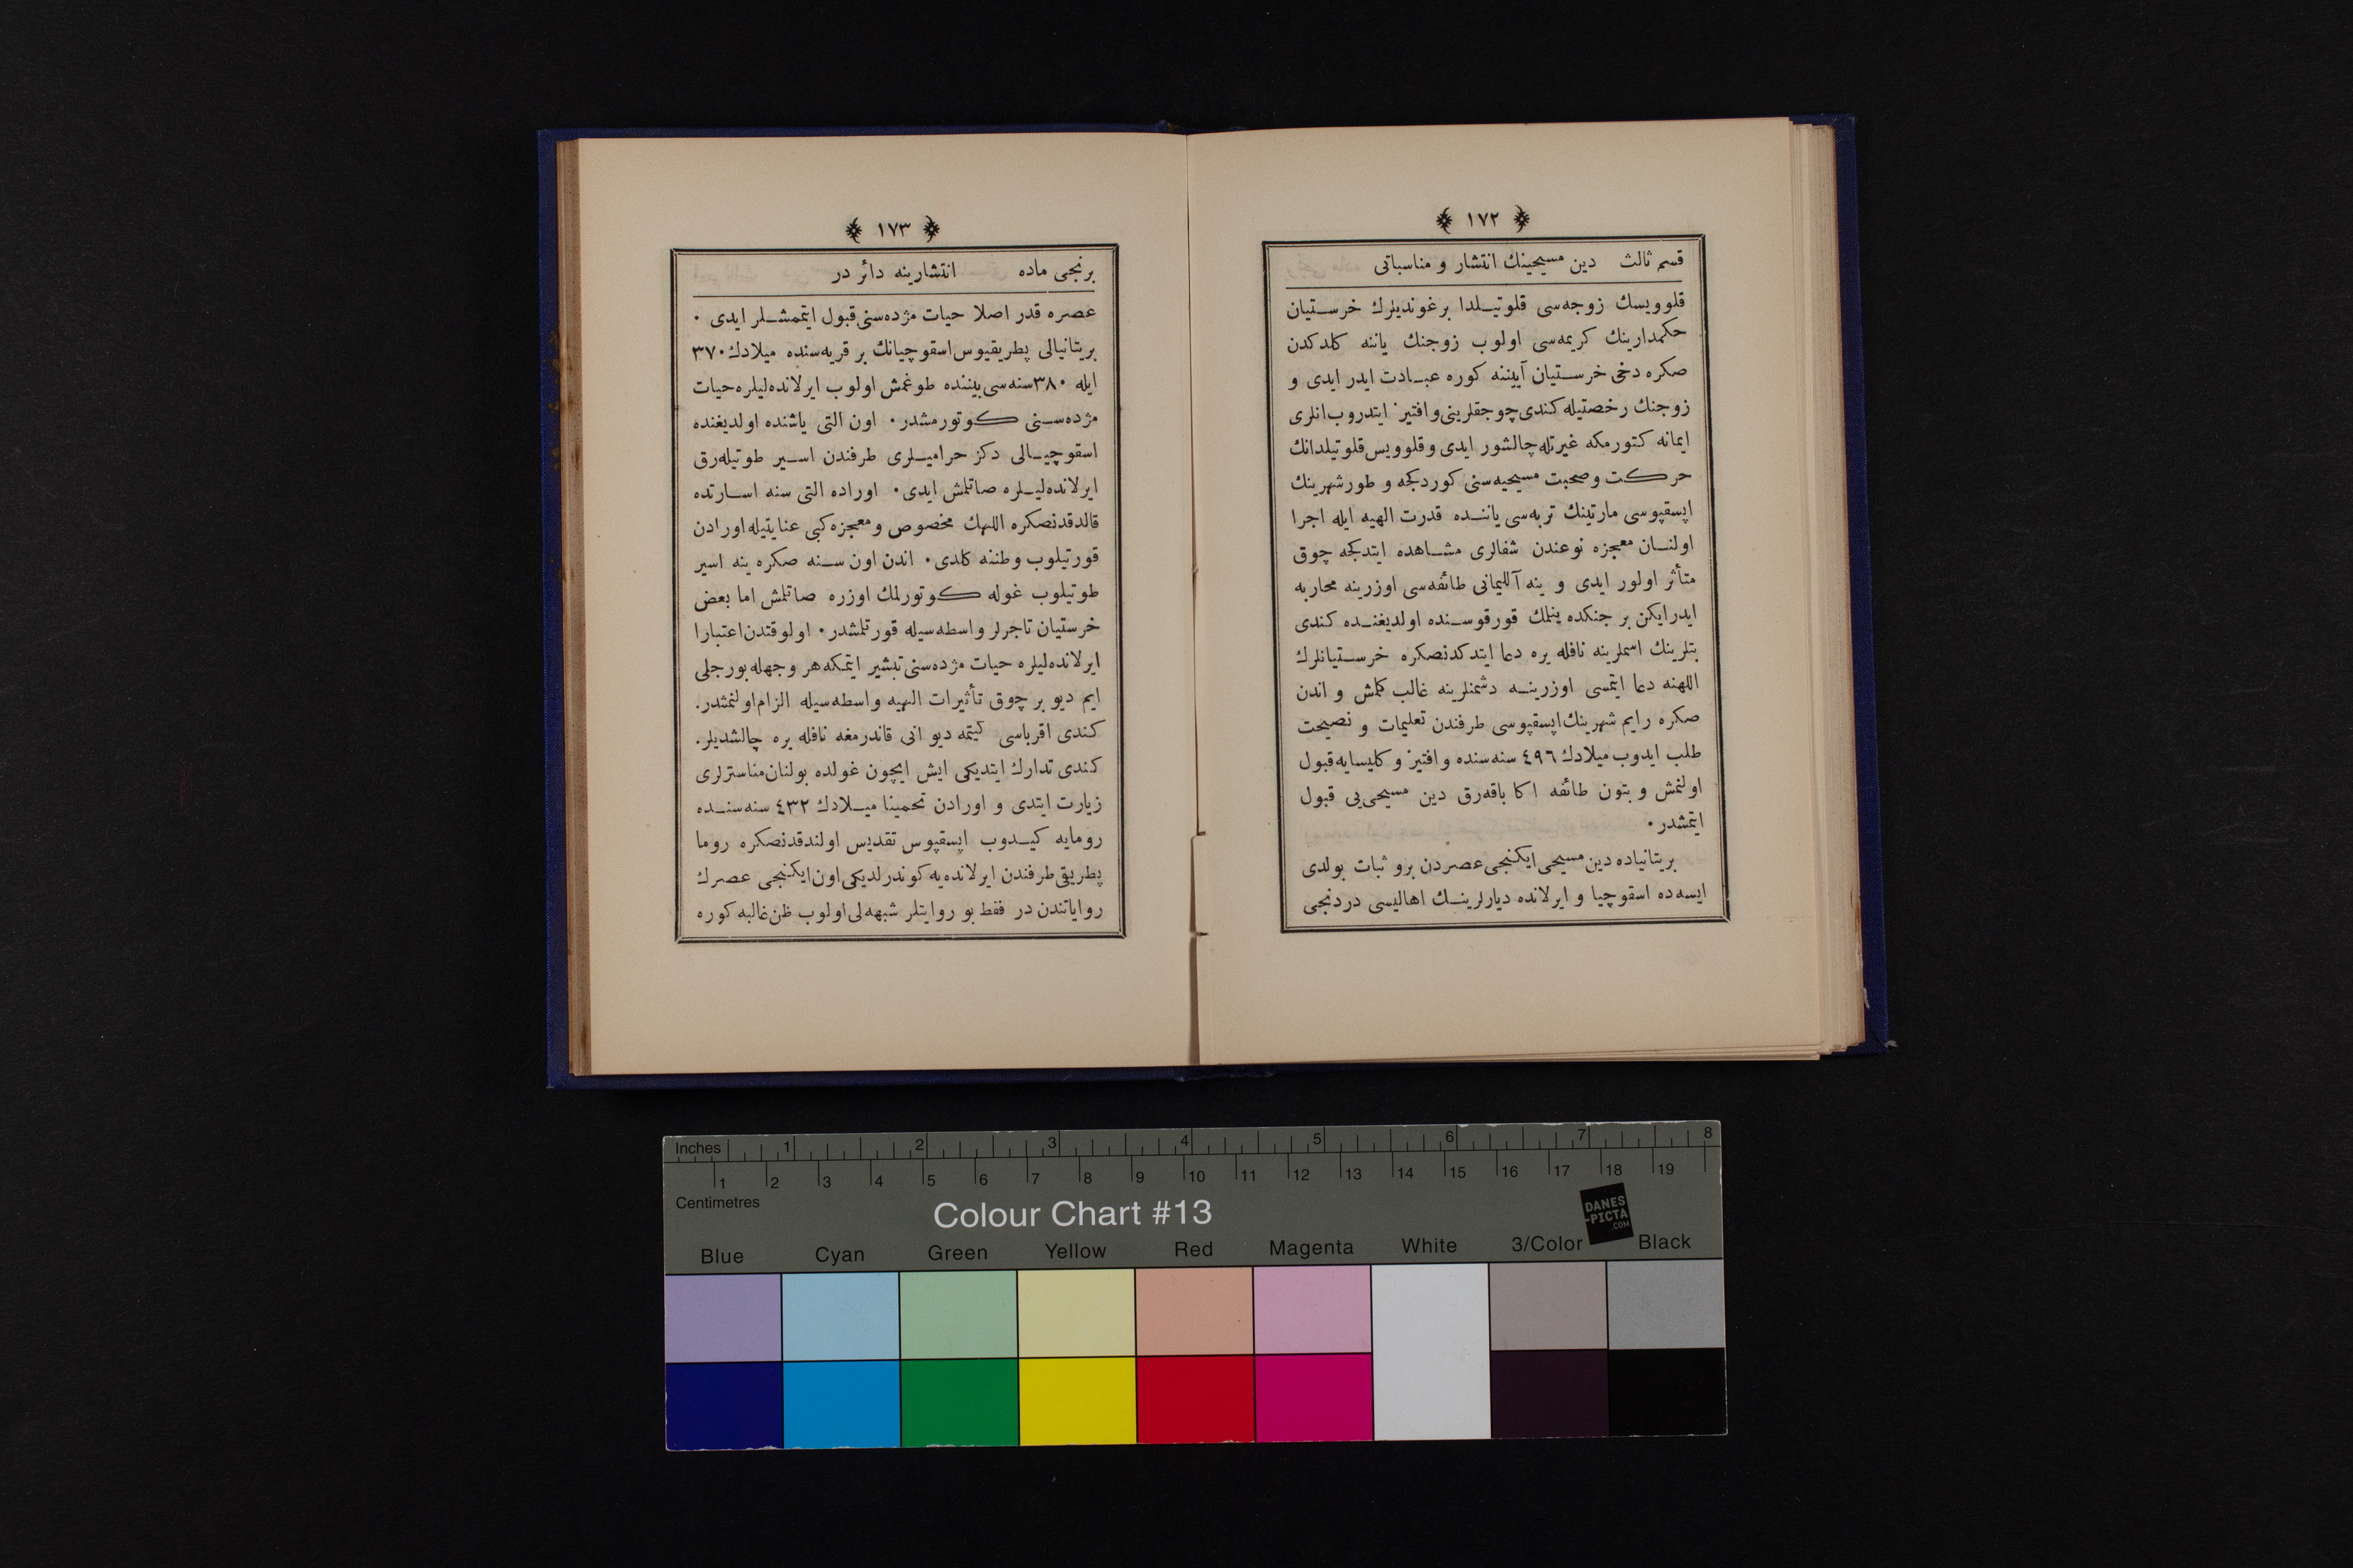 ١٧٢
قسم ثالث دين مسيحينك انتشار و مناسباتى
قلوويسك زوجه‌سى قلوتيلدا برغونديلرك خرستيان
حكمدارينك كريمه‌سى اولوب زوجنك ياننه كلدكدن
صكره دخى خرستيان آييننه كوره عبادت ايدر ايدى و
زوجنك رخصتيله كندى چوجقلرينى وافتيز ايتدروب انلرى
ايمانه كتورمكه غيرتله چالشور ايدى و قلوويس قلوتيلدانك
حركت و صحبت مسيحيه‌سنى كوردكجه و طور شهرينك
اپسقپوسى مارتينك تربه‌سى ياننده قدرت الهيه ايله اجرا
اولنان معجزه نوعندن شفالرى مشاهده ايتدكجه چوق
متأثر اولور ايدى و ينه آلليمانى طائفه‌سى اوزرينه محاربه
ايدرايكن بر جنكده ينلمك قورقوسنده اولديغنده كندى
بتلرينك اسملرينه نافله يره دعا ايتدكدنصكره خرستيانلرك
اللهنه دعا ايتمسى اوزرينه دشمنلرينه غالب كلمش و اندن
صكره رايم شهرينك اپسقپوسى طرفندن تعليمات و نصيحت
طلب ايدوب ميلادك ٤٩٦ سنه‌سنده وافتيز و كليسايه قبول
اولنمش و بتون طائفه اكا باقه‌رق دين مسيحى‌يى قبول
ايتمشدر٠
بريتانياده دين مسيحى ايكنجى عصردن برو ثبات بولدى
ايسه‌ده اسقوچيا و ايرلانده ديارلرينك اهاليسى دردنجى
١٧٣
برنجى ماده انتشارينه دائر در
عصره قدر اصلا حيات مژده‌سنى قبول ايتممشلر ايدى ٠
بريتانيالى پطريقيوس اسقوچيانك بر قريه‌سنده ميلادك ٣٧٠
ايله ٣٨٠ سنه‌سى بيننده طوغمش اولوب ايرلانده‌ليلره حيات
مژده‌سنى كوتورمشدر٠ اون التى ياشنده اولديغنده
اسقوچيالى دكز حراميلرى طرفندن اسير طوتيله‌رق
ايرلانده‌ليلره صاتلمش ايدى٠ اوراده التى سنه اسارتده
قالدقدنصكره اللهك مخصوص و معجزه كبى عنايتيله اورادن
قورتيلوب وطننه كلدى٠ اندن اون سنه صكره ينه اسير
طوتيلوب غوله كوتورلمك اوزره صاتلمش اما بعض
خرستيان تاجرلر واسطه‌سيله قورتلمشدر٠ اولوقتدن اعتبارا
ايرلانده‌ليلره حيات مژده‌سنى تبشير ايتمكه هر وجهله بورجلى
ايم ديو بر چوق تأثيرات الهيه واسطه‌سيله الزام اولنمشدر.
كندى اقرباسى كيتمه ديو انى قاندرمغه نافله يره چالشديلر.
كندى تدارك ايتديكى ايش ايچون غولده بولنان مناسترلرى
زيارت ايتدى و اورادن تخمينا ميلادك ٤٣٢ سنه‌سنده
رومايه كيدوب اپسقپوس تقديس اولندقدنصكره روما
پطريقى طرفندن ايرلانده‌يه كوندرلديكى اون‌ايكنجى عصرك
رواياتندن در فقط بو روايتلر شبهه‌لى اولوب ظن غالبه كوره
Inches 1 2 3 4 5 6 7 8
1 2 3 4 5 6 7 8 9 10 11 12 13 14 15 16 17 18 19
Centimetres
Colour Chart #13
DANES
-PICTA
.COM
Blue Cyan Green Yellow Red Magenta White 3/Color Black